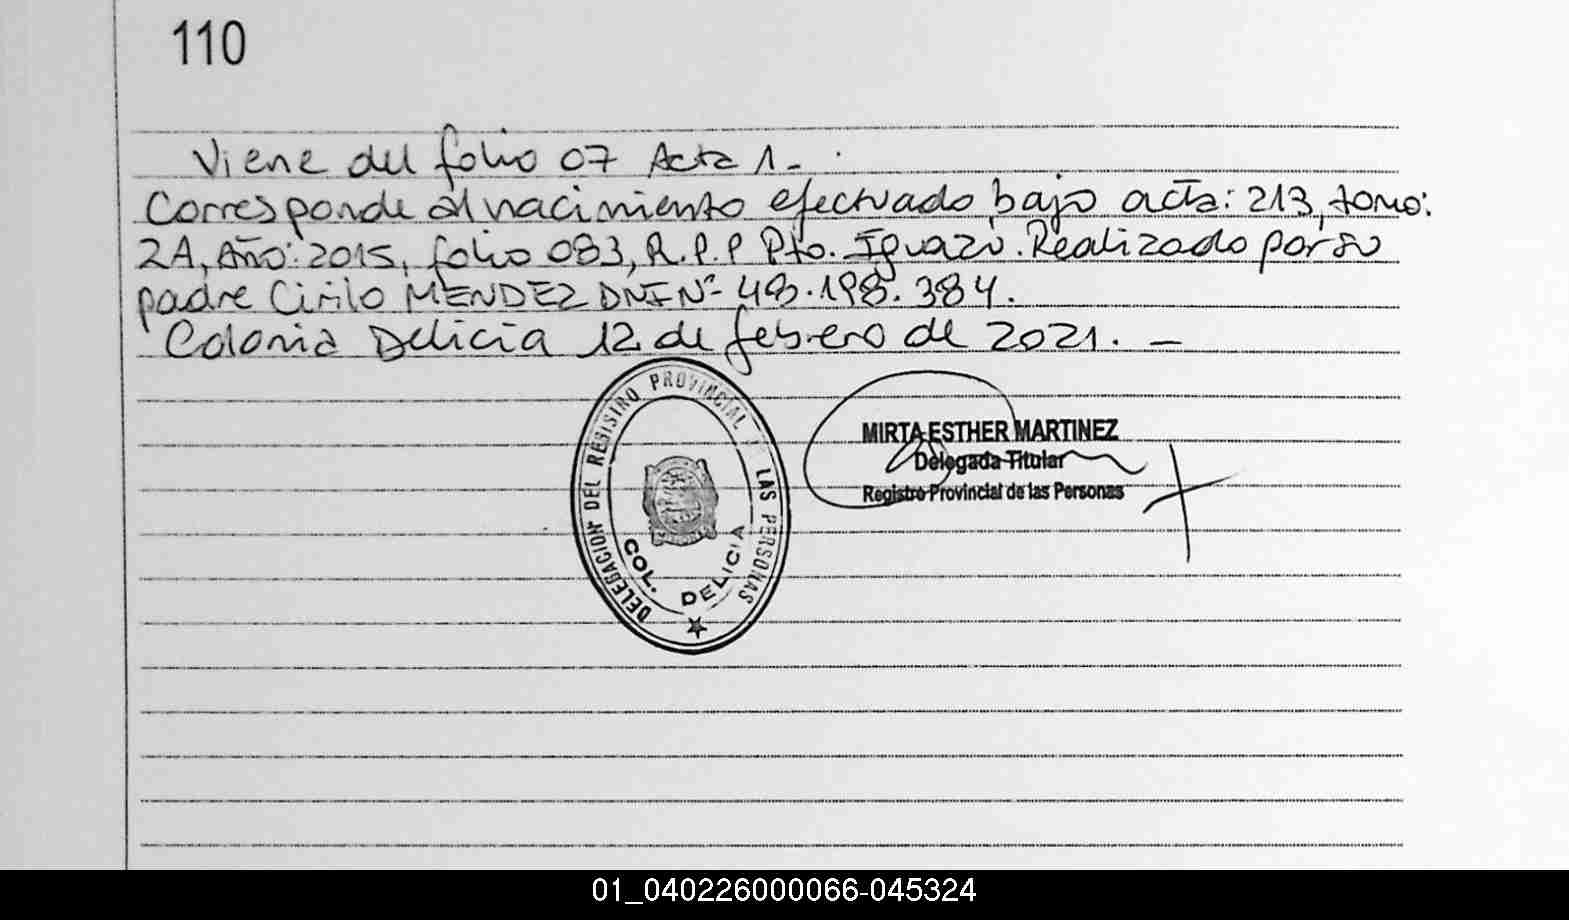 110
Viene del folio 07 Acta 1-.
Corresponde al nacimiento efectuado bajo acta: 213, tomo:
2A, Año: 2015, folio 083, R.P.P Pto. Iguazú. Realizado por su
padre Cirilo MENDEZ DNI Nº 48.198.384.
Colonia Delicia 12 de febrero de 2021. -
DELEGACION DEL REGISTRO PROVINCIAL DE LAS PERSONAS
COL. DELICIA
MIRTA ESTHER MARTINEZ
Delegada Titular
Registro Provincial de las Personas
01_040226000066-045324